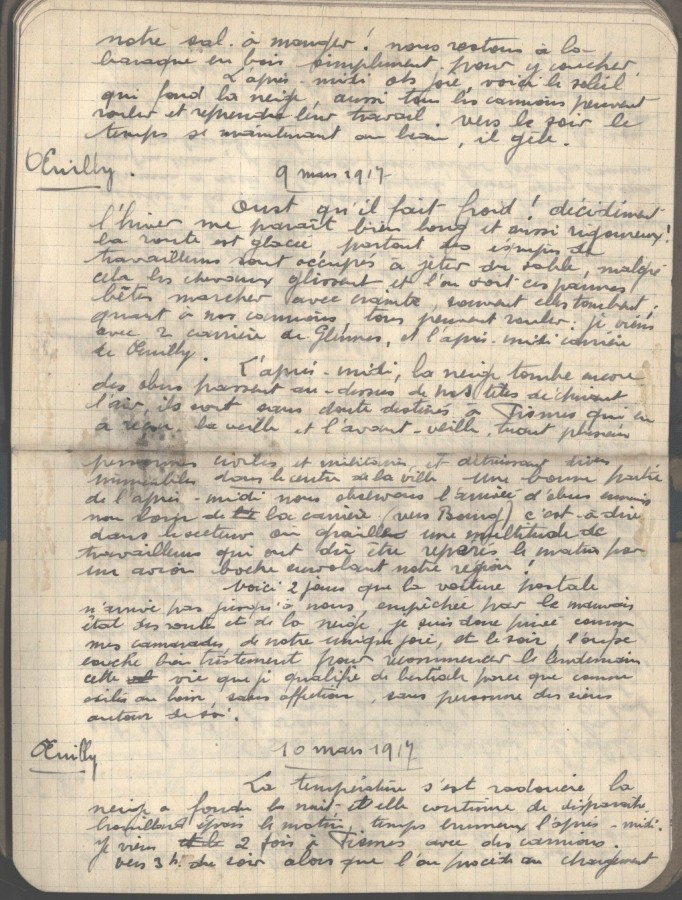 notre sal. à manger ! nous restons à la
baraque en bois simplement pour y coucher.
L'après-midi oh joie, voici le soleil
qui fond la neige, aussi tous les camions peuvent
rouler et reprendre leur travail. vers le soir le
temps se maintenant au beau, il gèle.
Œuilly. 9 mars 1917
Oust qu'il fait froid ! décidément
l'hiver me paraît bien long et aussi rigoureux !
la route est glacée partout des équipes de
travailleurs sont occupés à jeter du sable, malgré
cela les chevaux glissent et l'on voit ces pauvres
bêtes marcher avec crainte, souvent elles tombent,
quant à nos camions tous peuvent rouler. je viens
avec 2 carrière de Glennes, et l'après-midi carrière
de Œuilly.
L'après-midi, la neige tombe encore
des obus passent au-dessus de nos têtes déchirant
l'air, ils sont sans doute destinés à Fismes qui en
a reçu la veille et l'avant-veille, tuant plusieurs
personnes civiles et militaires, et détruisant divers
immeubles dans le centre de la ville. une bonne partie
de l'après-midi nous observons l'arrivée d'obus ennemis
non loin de la carrière (vers Bourg) c'est-à-dire
dans le secteur où une multitude de
travailleurs qui ont dû être repérés le matin par
un avion boche survolant notre région !
Voici 2 jours que la voiture postale
n'arrive pas jusqu'à nous, empêchée par le mauvais
état des route et de la neige, je suis donc privé comme
mes camarades de notre unique joie, et le soir, l'on se
couche bien tristement pour recommencer le lendemain
cette vie que je qualifie de bestiale parce que comme
exilés au loin, sans affection, sans personne des siens
autour de soi.
Œuilly 10 mars 1917
La température s'est radoucie la
neige a fondu la nuit et elle continue de disparaître.
brouillard épais le matin, temps brumeux l'après-midi.
je viens 2 fois à Fismes avec des camions.
vers 3h. du soir alors que l'on procède au chargement